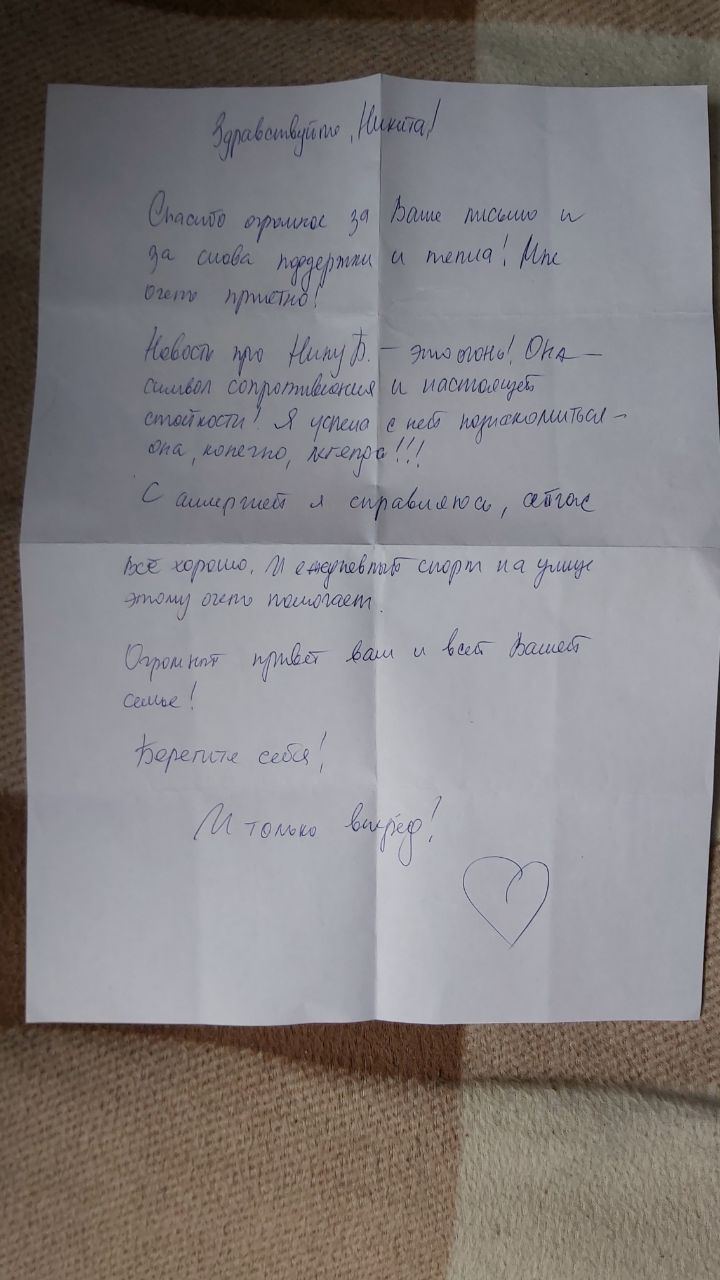 Здравствуйте, Никита!
Спасибо огромное за Ваше письмо и
за слова поддержки и тепла! Мне
очень приятно!
Новость про Нину Б. – это огонь! Она –
символ сопротивления и настоящей
стойкости! Я успела с ней познакомиться –
она, конечно, легенда!!!
С аллергией я справляюсь, сейчас
всё хорошо. И ежедневный спорт на улице
этому очень помогает.
Огромный привет вам и всей Вашей
семье!
Берегите себя!
И только вперёд!